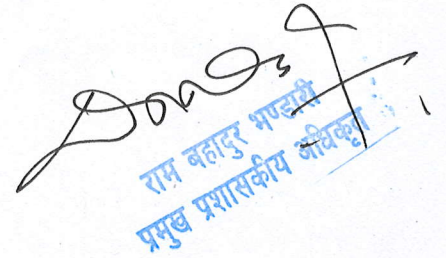 राम बहादुर भण्डारी
प्रमुख प्रशासकीय अधिकृत